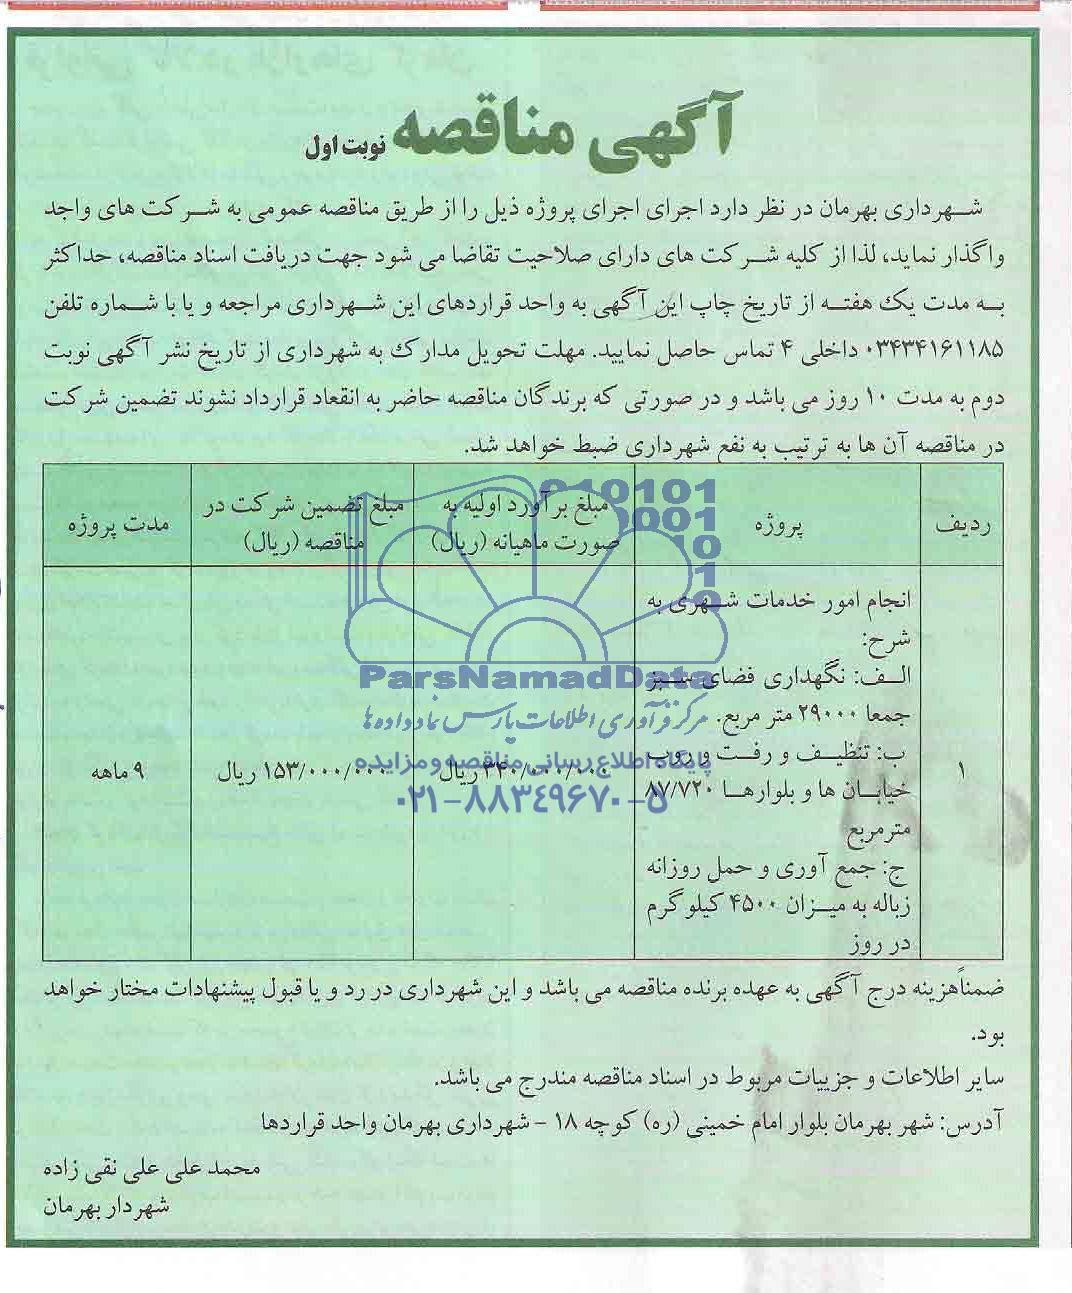 آگهی مناقصه نوبت اول
شهرداری بهرمان در نظر دارد اجرای اجرای پروژه ذیل را از طریق مناقصه عمومی به شرکت های واجد
واگذار نماید، لذا از کلیه شرکت های دارای صلاحیت تقاضا می شود جهت دریافت اسناد مناقصه، حداکثر
به مدت یک هفته از تاریخ چاپ این آگهی به واحد قراردهای این شهرداری مراجعه و یا با شماره تلفن
۰۳۴۳۴۱۶۱۱۸۵ داخلی ۴ تماس حاصل نمایید. مهلت تحویل مدارک به شهرداری از تاریخ نشر آگهی نوبت
دوم به مدت ۱۰ روز می باشد و در صورتی که برندگان مناقصه حاضر به انقعاد قرارداد نشوند تضمین شرکت
در مناقصه آن ها به ترتیب به نفع شهرداری ضبط خواهد شد.
ردیف
پروژه
مبلغ برآورد اولیه به
صورت ماهیانه (ریال)
مبلغ تضمین شرکت در
مناقصه (ریال)
مدت پروژه
۱
انجام امور خدمات شهری به
شرح:
الف: نگهداری فضای سبز
جمعا ۲۹۰۰۰ متر مربع.
ب: تنظیف و رفت و روب
خیابان ها و بلوارها ۸۷/۷۲۰
مترمربع
ج: جمع آوری و حمل روزانه
زباله به میزان ۴۵۰۰ کیلوگرم
در روز
۳۴۰/۰۰۰/۰۰۰ ریال
۱۵۳/۰۰۰/۰۰۰ ریال
۹ ماهه
010101
0001
10
1
0
ParsNamadData
مرکز فرآوری اطلاعات پارس نماد داده ها
پایگاه اطلاع رسانی مناقصه و مزایده
۰۲۱-۸۸۳۴۹۶۷۰-۵
ضمناًهزینه درج آگهی به عهده برنده مناقصه می باشد و این شهرداری در رد و یا قبول پیشنهادات مختار خواهد
بود.
سایر اطلاعات و جزییات مربوط در اسناد مناقصه مندرج می باشد.
آدرس: شهر بهرمان بلوار امام خمینی (ره) کوچه ۱۸ - شهرداری بهرمان واحد قراردها
محمد علی علی نقی زاده
شهردار بهرمان